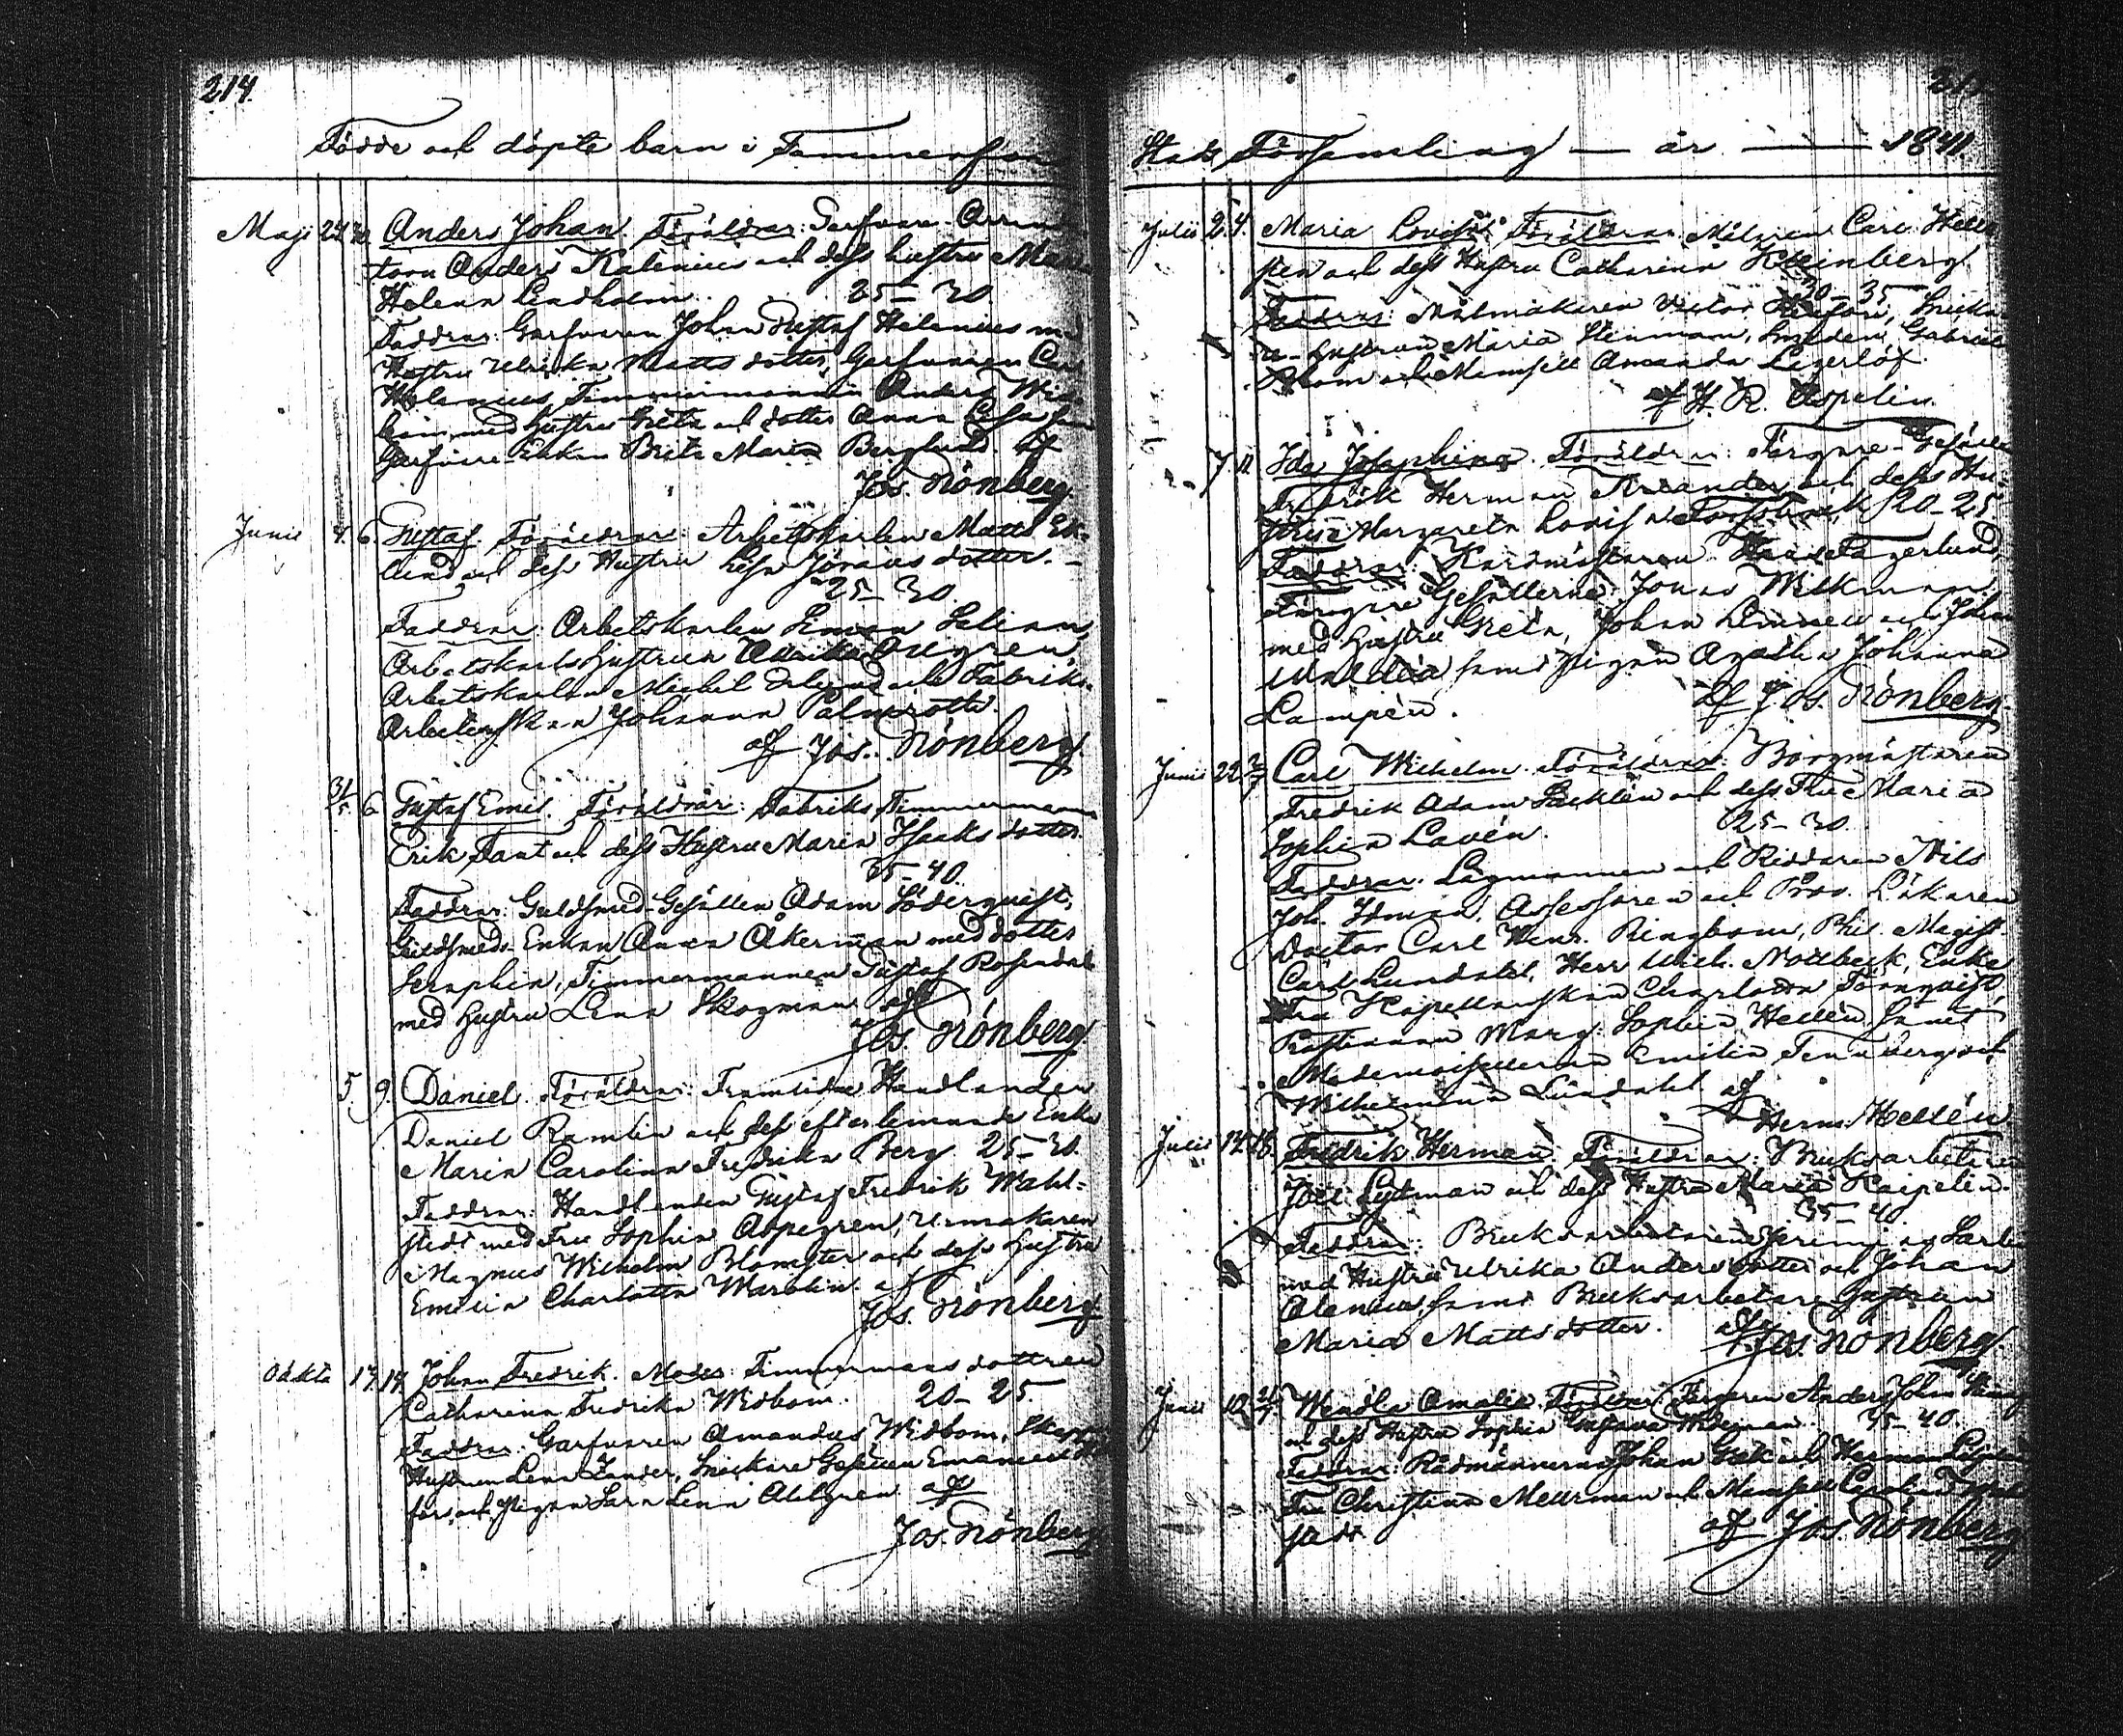 214.
Födde och döpte barn i Tammerfors
Maji 24 30 Anders Johan. Föräldrar: Garfvare-
Anders Kalenius och dess hustru Maria
Helena Lindholm. 25–30
Faddrar: Garfvaren Johan Gustaf Helenius med
Hustru Ulrika Matts dotter, Garfvaren Carl
Helenius, Timmermannen Anders
med Hustru Greta och dotter Anna Lisa samt
Garfvare-Enkan Brita Maria Berglund. af
Jos. Grönberg.
Junii 4. 6. Gustaf. Föräldrar: Arbetskarlen Matts Ek-
lund och dess Hustru Lisa Jöransdotter.
25–30.
Faddrar: Arbetskarlen Simon Selin,
Arbetskarls Hustrun Ulrika
Arbetskarlen Michel och Fabriks-
Arbeterskan Johanna Palmroth.
af Jos. Grönberg.
31/5 6 Gustaf Emil. Föräldrar: Fabriks Timmermannen
Erik Fant och dess Hustru Maria Isaksdotter.
35–40.
Faddrar: Guldsmeds-Gesällen Adam Söderqvist,
Guldsmeds-Enkan Anna Åkerman med dotter
Seraphia, Timmermannen Gustaf Rosendal
med Hustru Lena Skogman af
Jos. Grönberg.
5. 9. Daniel. Föräldrar: Framlidne Handlanden
Daniel Ramlin och dess efterlemnade Enka
Maria Carolina Fredrika Berg 25–30.
Faddrar: Handlanden Gustaf Fredrik Wahl-
stedt med Fru Sophia Aspegren, Urmakaren
Magnus Wilhelm Blomster och dess Hustru
Emelia Charlotta Warelin. af
Jos. Grönberg.
Oäkta 17. 19. Johan Fredrik. Moder: Timmermans dottren
Catharina Fredrika Widbom. 20–25.
Faddrar: Garfvaren Amandus Widbom,
Hustrun Lena Zander, Snickare Gesällen Emanuel
fors och Pigan Sara Lena Ahlgren af
Jos. Grönberg.
Stads Församling — år — 1841.
Julii 2. 4. Maria Lovisa. Föräldrar: Carl
och dess Hustru Catharina Kleinberg.
30–35
Faddrar: Målmakaren Victor
Hustrun Maria Stenman, Smeden Gabriel
och Mamsell Amanda Lagerlöf.
af H. R. Aspelin.
7. 11. Ida Josephina. Föräldrar: Färgare-Gesällen
Fredrik Herman och dess Hu-
stru Margareta Lovisa 20–25.
Faddrar: Kardmästaren Fagerlund,
Färgare Gesällerne Jonas Wilkman
med Hustru Greta, Johan och Johan
samt Pigan Agatha Johanna
Lampén. af Jos. Grönberg.
Junii 22. 2/7 Carl Wilhelm. Föräldrar: Borgmästaren
Fredrik Adam Säcklén och dess Fru Maria
Sophia Lavén. 25–30.
Faddrar: Lagmannen och Riddaren Nils
Joh. Idman, Assessoren och Prov. Läkaren
Doctor Carl Wenr. Ringbom, Phil. Magist.
Carl Lundahl, Herr Wilh. Nottbeck, Enke
Fru Kapellanskan Charlotta Törnqvist,
Prostinnan Marg. Sophia Hellén samt
Mademoisellerna Emilia Tennberg och
Wilhelmina Lundahl af
Herm. Hellén
Julii 14. 18. Fredrik Herman. Föräldrar: Bruksarbetaren
Joel Lydman och dess Hustru Maria Kaipelin.
35–40.
Faddrar: Bruksarbetaren Jeremias Sarlin
med Hustru Ulrika Andersdotter och Johan
Alenius, samt Bruksarbetare Hustrun
Maria Mattsdotter. af Jos. Grönberg.
Junii 10. Wendla Amalia. Föräldrar: Färgaren Anders Johan
och dess Hustru Sophia Gustava Wideman. 35–40
Faddrar: Rådmännerna Johan Grek och Herman
Fru Christina Meurman och Mamsell Carolina
stedt af Jos. Grönberg